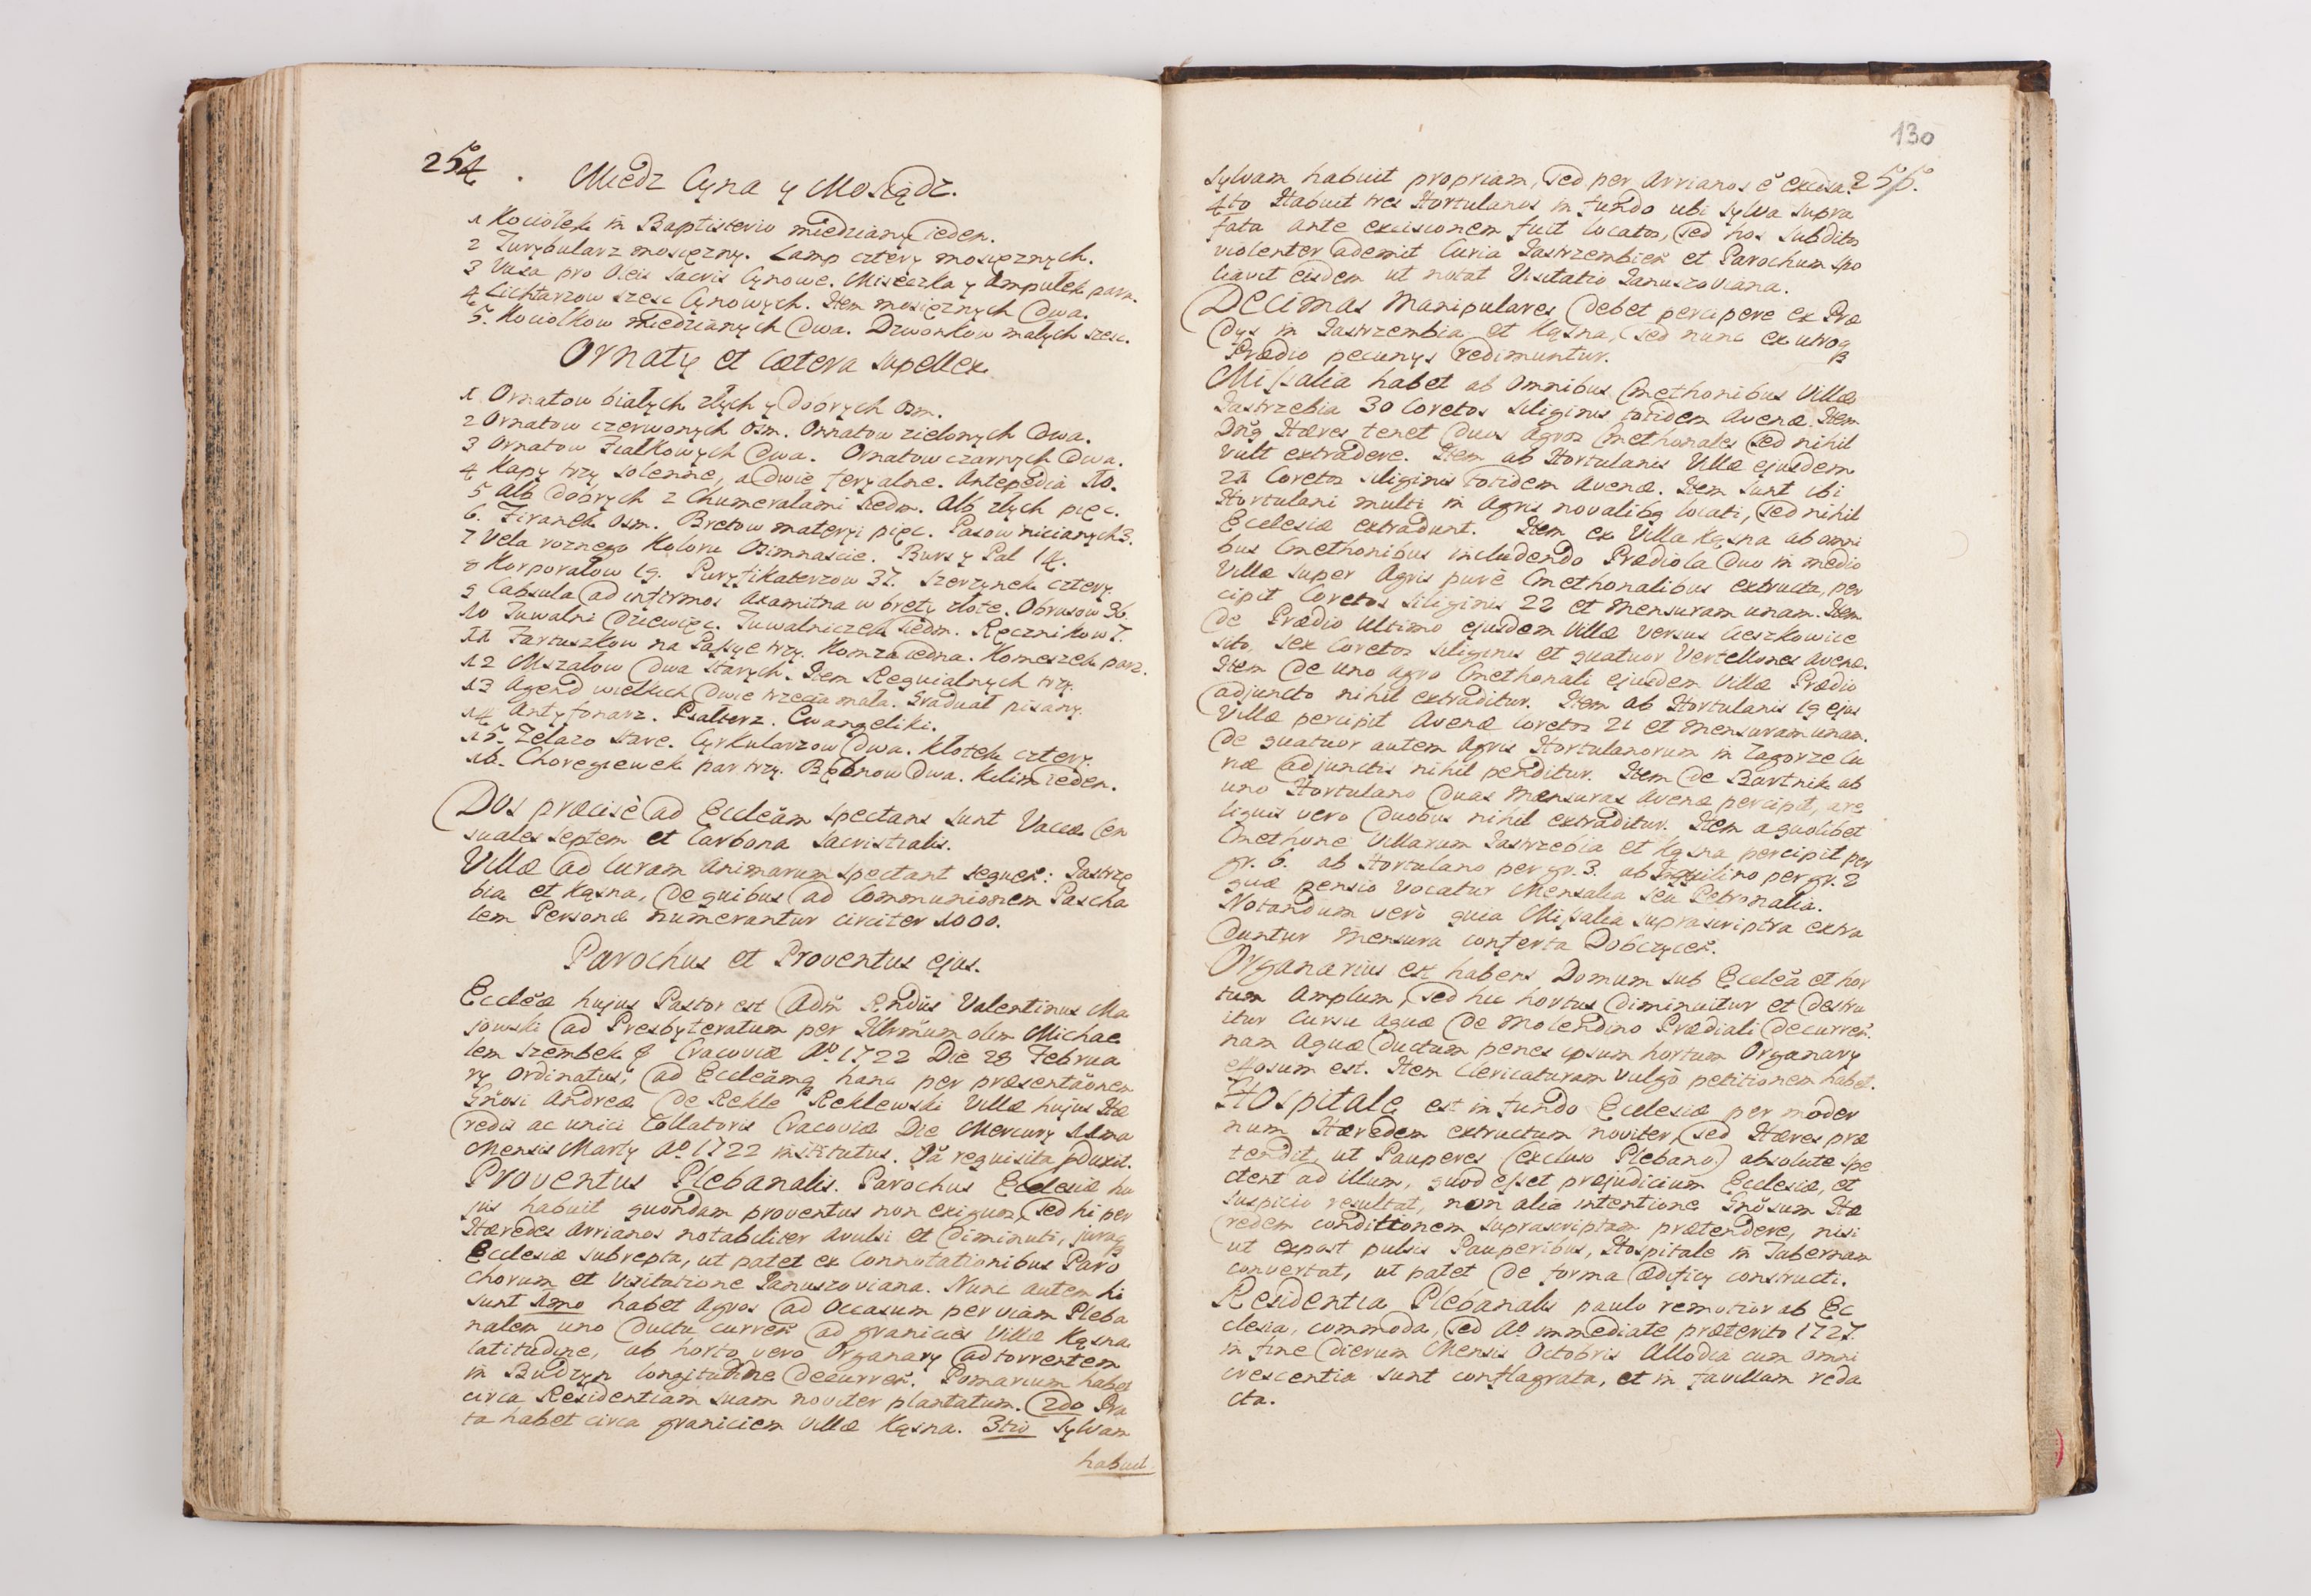 254
Miedz Cyna y Mosiądz.
1 Kociołek in Baptisterio miedziany ieden.
2 Turybularz mosięzny. Lamp cztery mosięznych.
3 Vasa pro Oleis Sacris Cynowe. Miseczka y Ampułek para.
4 Lichtarzow szesc Cynowych. Item mosięznych dwa.
5. Kociołkow miedzianych dwa. Dzwonkow małych szesc.
Ornaty et cætera supellex
1. Ornatow białych złych y dobrych osm.
2 Ornatow czerwonych osm. Ornatow zielonych dwa.
3 Ornatow Fiałkowych dwa. Ornatow czarnych dwa.
4 Kapy trzy solenne, a dwie feryalne. Antepedia 10.
5 Alb dobrych z Chumerałami siedm. Alb złych pięc.
6. Firanek osm. Bretow materyi pięc. Pasow nicianych 3.
7 Vela roznego Koloru osimnascie. Burs y Pal 14.
8 Korporałow 19. Puryfikaterzow 37. Szerzynek cztery.
9 Cabsula ad infirmos axamitna w brety złote. Obrusow 36.
10 Tuwalni dziewięc. Tuwalniczek siedm. Ręcznikow 7.
11 Fartuszkow na Passye trzy. Komza iedna. Komeszek para.
12 Mszałow dwa starych. Item Requialnych trzy.
13 Agend wielkich dwie trzecia mała. Graduał pisany.
14 Antyfonarz. Psałterz. Ewangeliki.
15. Zelazo stare. Cyrkularzow dwa. Kłotek cztery.
16. Choregiewek par trzy. Bębnow dwa. Kilim ieden.
Dos præcisè ad Eccleãm spectans sunt Vaccæ Cen
suales septem et Carbona Sacristialis.
Villæ ad Curam Animarum spectant sequeñ: Jastrzę
bia et Kąsna, de quibus ad Communionem Pascha
lem Personæ numerantur circiter 1000.
Parochus et Proventus ejus.
Eccleæ hujus Pastor est Adm Rndus Valentinus Ma
jowski ad Presbyteratum per Illrmum olim Michae
lem Szembek Cracoviæ Ao 1722 Die 28 Februa
ry Ordinatus, ad Eccleamq hanc per præsentãonem
Gnosi Andreæ de Rekle Reklewski Villæ hujus Hæ
redis ac unici Collatoris Cracoviæ Die Mercury 11ma
Mensis Marty Ao 1722 institutus. requisita pduxit.
Proventus Plebanalis. Parochus Ecclesiæ hu
jus habuit quondam proventus non exiguos, sed hi per
Hæredes Arrianos notabiliter avulsi et diminuti, juraq
Ecclesiæ subrepta, ut patet ex Connotationibus Paro
chorum et Visitatione Januszoviana. Nunc autem hi
sunt 1mo habet Agros ad Occasum per viam Pleba
nalem uno ductu curreñ ad granicies Villæ Kąsna
latitudine, ab horto vero Organary ad torrentem
in Budzyn longitudine decurreñ. Pomarium habet
circa Residentiam suam noviter plantatum. 2do Pra
ta habet circa graniciem Villæ Kąsna. 3tio Sylvam
habuit
130
255.
Sylvam habuit propriam, sed per Arrianos ē excisa.
4to Habuit tres Hortulanos in fundo ubi Sylva supra
fata ante excisionem fuit locatos, sed hos Subditos
violenter ademit Curia Jastrzembień et Parochum spo
liavit eisdem ut notat Visitatio Januszoviana.
Decimas Manipulares debet percipere ex Præ
dys in Jastrzembia et Kąsna, sed nunc ex utroq
Prædio pecunys redimuntur.
Missalia habet ab omnibus Cmethonibus Villæ
Jastrzebia 30 Coretos Siliginis totidem Avenæ. Item
Dnus Hæres tenet duos Agros Cmethonales sed nihil
vult extradere. Item ab Hortulanis Villæ ejusdem
21 Coretos siliginis totidem Avenæ. Item sunt ibi
Hortulani multi in Agris novalibq locati, sed nihil
Ecclesiæ extradunt. Item ex Villa Kąsna ab omni
bus Cmethonibus includendo Prædiola duo in medio
Villæ super Agris purè Cmethonalibus extructa, per
cipit Coretos siliginis 22 et Mensuram unam. Item
de Prædio Ultimo ejusdem Villæ versus Cieszkowice
sito, sex Coretos siliginis et quatuor Vertellones Avenæ.
Item de uno Agro Cmethonali ejusdem Villæ Prædio
adjuncto nihil extraditur. Item ab Hortulanis 19 ejus
Villæ percipit Avenæ Coretos 21 et Mensuram unam.
De quatuor autem Agris Hortulanorum in Zagorze Cu
riæ adjunctis nihil penditur. Item de Bartnik ab
uno Hortulano duas Mensuras Avenæ percipit, a re
liquis vero duobus nihil extraditur. Item a quolibet
Cmethone Villarum Jastrzebia et Kąsna percipit per
gr. 6. ab Hortulano per gr. 3. ab Inquilino per gr. 2
quæ pensio vocatur Mensalia seu Petronalia.
Notandum verò quia Missalia suprascriptra extra
duntur Mensura conferta Dobczyceñ.
Organarius est habens Domum sub Ecclea et hor
tum Amplum, sed hic hortus diminuitur et destru
itur Cursu Aquæ de Molendino Prædiali decurreñ.
nam Aquæ Ductum penes ipsum hortum Organary
effosum est. Item Clericaturam vulgò petitionem habet.
Hospitale est in fundo Ecclesiæ per moder
num Hæredem extructum noviter, sed Hæres præ
tendit, ut Pauperes (excluso Plebano) absolute spe
ctent ad illum, quod esset præjudicium Ecclesiæ, et
suspicio resultat, non alia intentione Gnosum Hæ
redem conditionem suprascriptam prætendere, nisi
ut expost pulsis Pauperibus, Hospitale in Tabernam
convertat, ut patet de forma ædificy constructi.
Residentia Plebanalis paulo remotior ab Ec
clesia, commoda, sed Ao immediate præterito 1727.
in fine dierum Mensis Octobris Allodia cum omni
crescentia sunt conflagrata, et in favillam reda
cta.